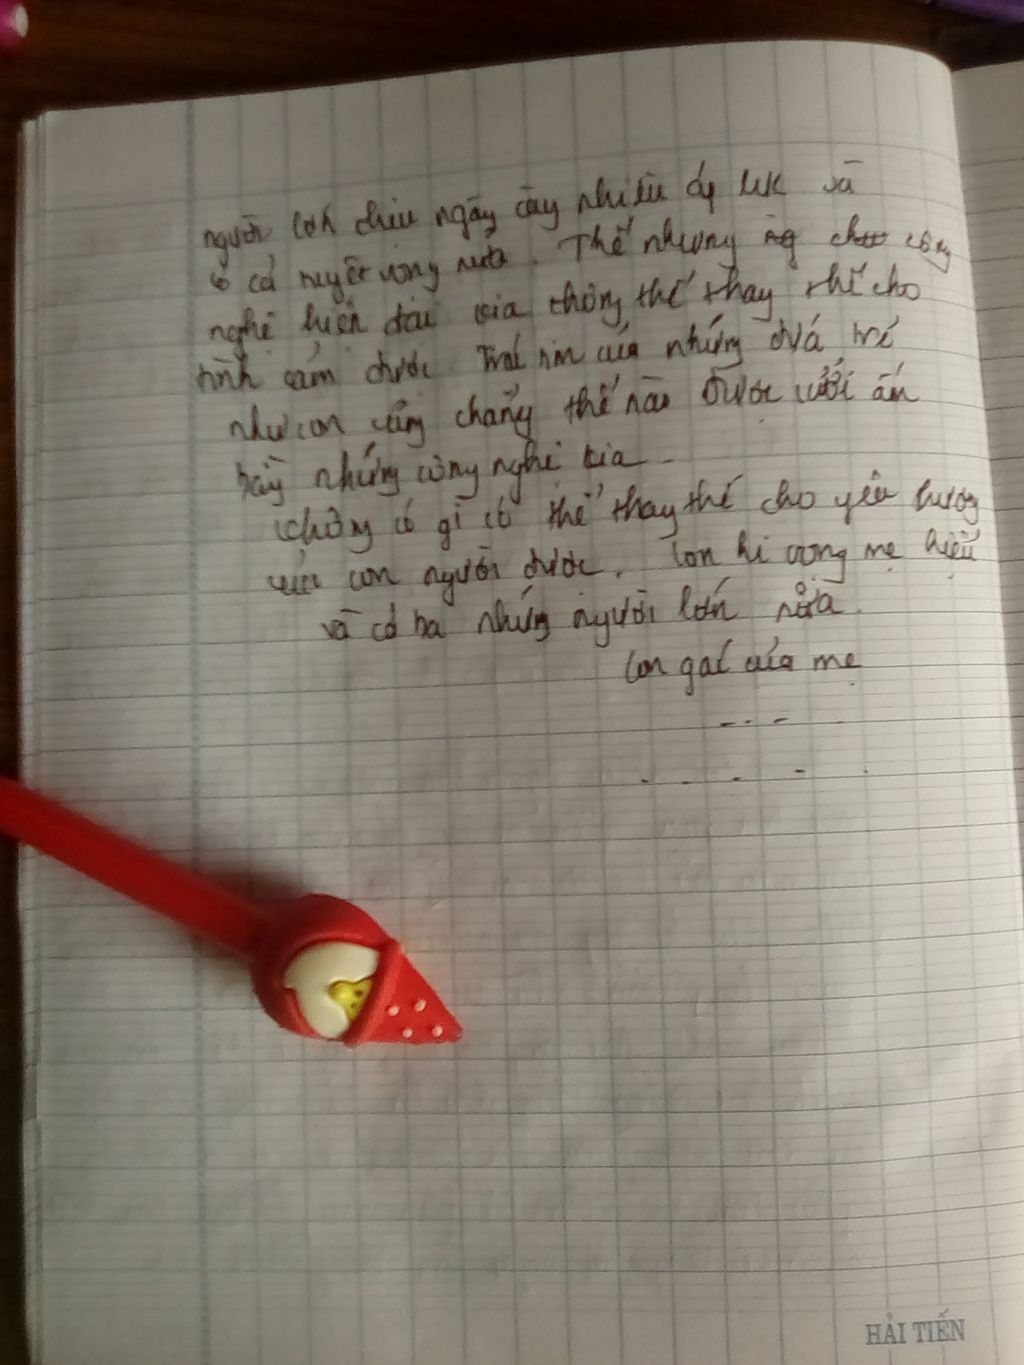 người lớn chịu ngày càng nhiều áp lực và
có cả tuyệt vọng nữa. Thế nhưng công
nghệ hiện đại kia không thể thay thế cho
tình cảm được. Trái tim của những đứa trẻ
như con cũng chẳng thể nào được sưởi ấm
bằng những công nghệ kia
không có gì có thể thay thế cho yêu thương
của con người được. Con hi vọng mẹ hiểu
và cả ba những người lớn nữa.
Con gái của mẹ
HẢI TIẾN